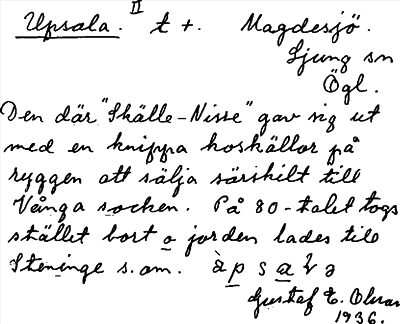 Upsala. II t +. Magdesjö.
Ljung sn
Ögl.
Den där "Skälle-Nisse" gav sig ut
med en knippa koskällor på
ryggen att sälja särskilt till
Vånga socken. På 80-talet togs
stället bort o jorden lades till
Steninge s.om.
Gustaf E.
1936.